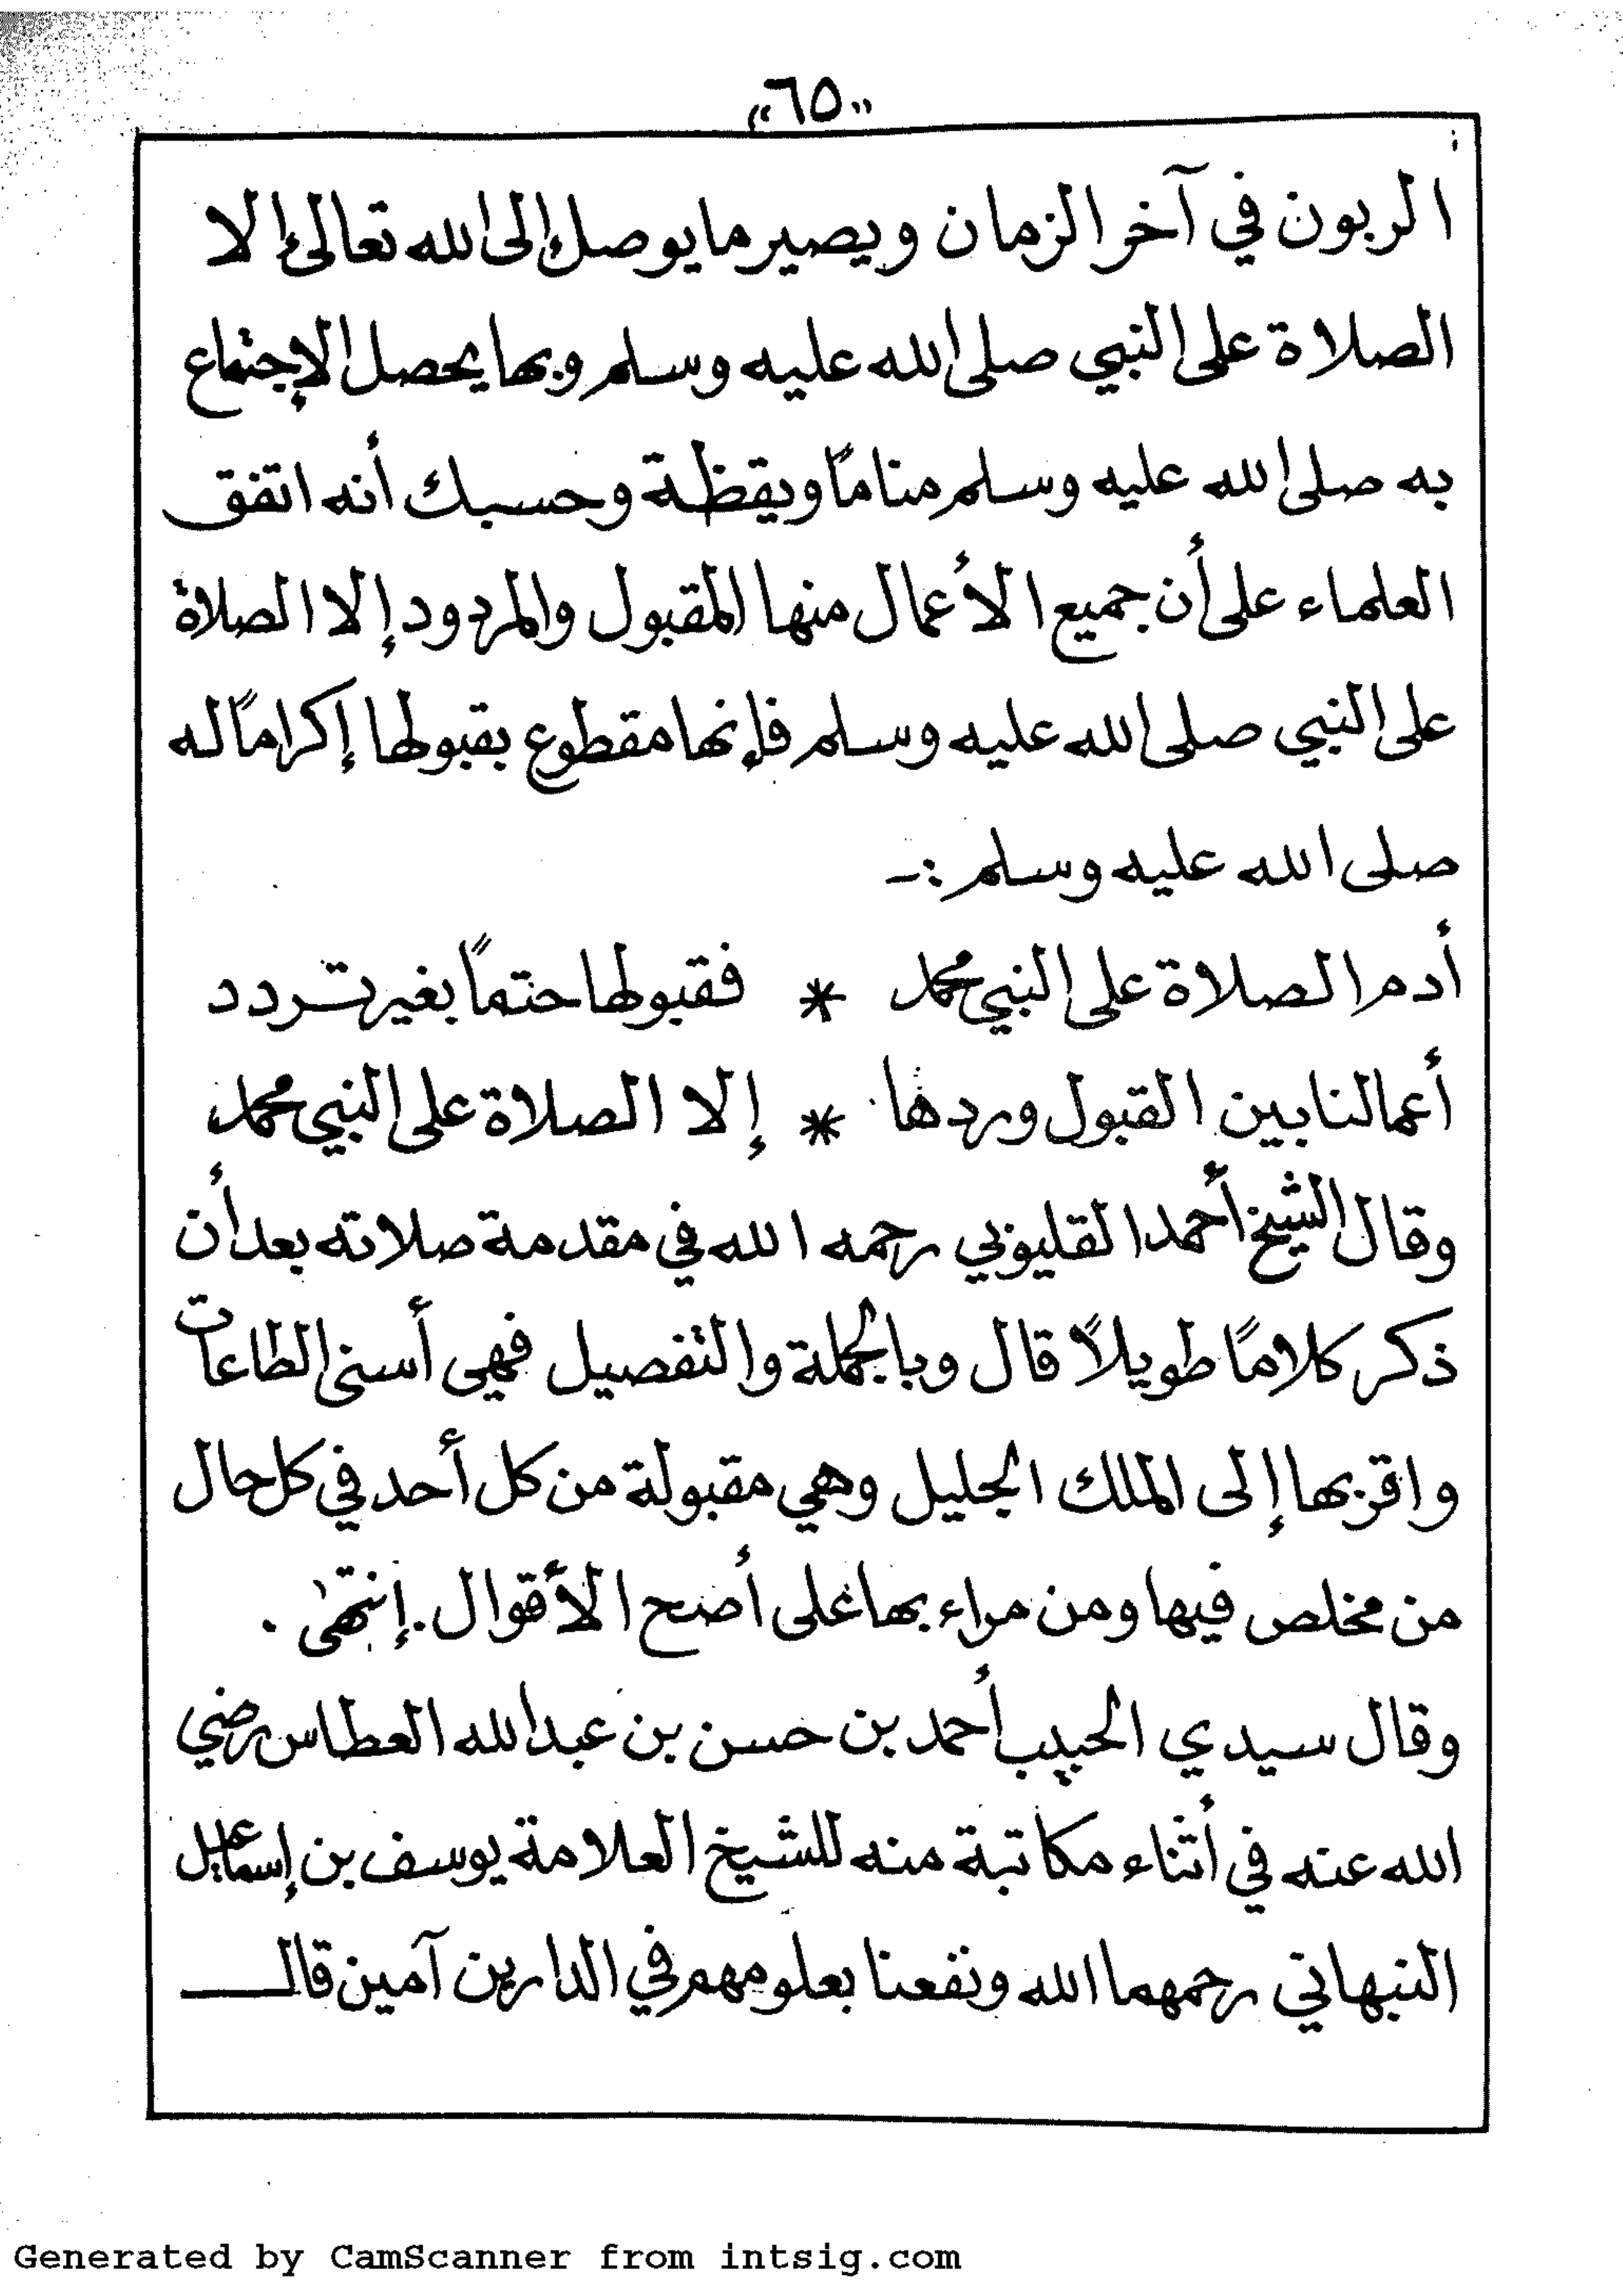 «٦٥»
الربون في آخر الزمان ويصير ما يوصل إلى الله تعالى إلا
الصلاة على النبي صلى الله عليه وسلم وبها يحصل الإجتماع
به صلى الله عليه وسلم منامًا ويقظة وحسبك أنه اتفق
العلماء على أن جميع الأعمال منها المقبول والمردود إلا الصلاة
على النبي صلى الله عليه وسلم فإنها مقطوع بقبولها إكرامًا له
صلى الله عليه وسلم :-
أدم الصلاة على النبي محمد * فقبولها حتمًا بغير تردد
أعمالنا بين القبول وردها * إلا الصلاة على النبي محمد
وقال الشيخ أحمد القليوبي رحمه الله في مقدمة صلاته بعد أن
ذكر كلامًا طويلاً قال وبالجملة والتفصيل فهي أسنى الطاعات
واقربها إلى الملك الجليل وهي مقبولة من كل أحد في كل حال
من مخلص فيها ومن مراء بها على أصح الأقوال . إنتهى .
وقال سيدي الحبيب أحمد بن حسن بن عبدالله العطاس رضي
الله عنه في أثناء مكاتبة منه للشيخ العلامة يوسف بن إسماعيل
النبهاني رحمهما الله ونفعنا بعلومهم في الدارين آمين قالـــ
Generated by CamScanner from intsig.com